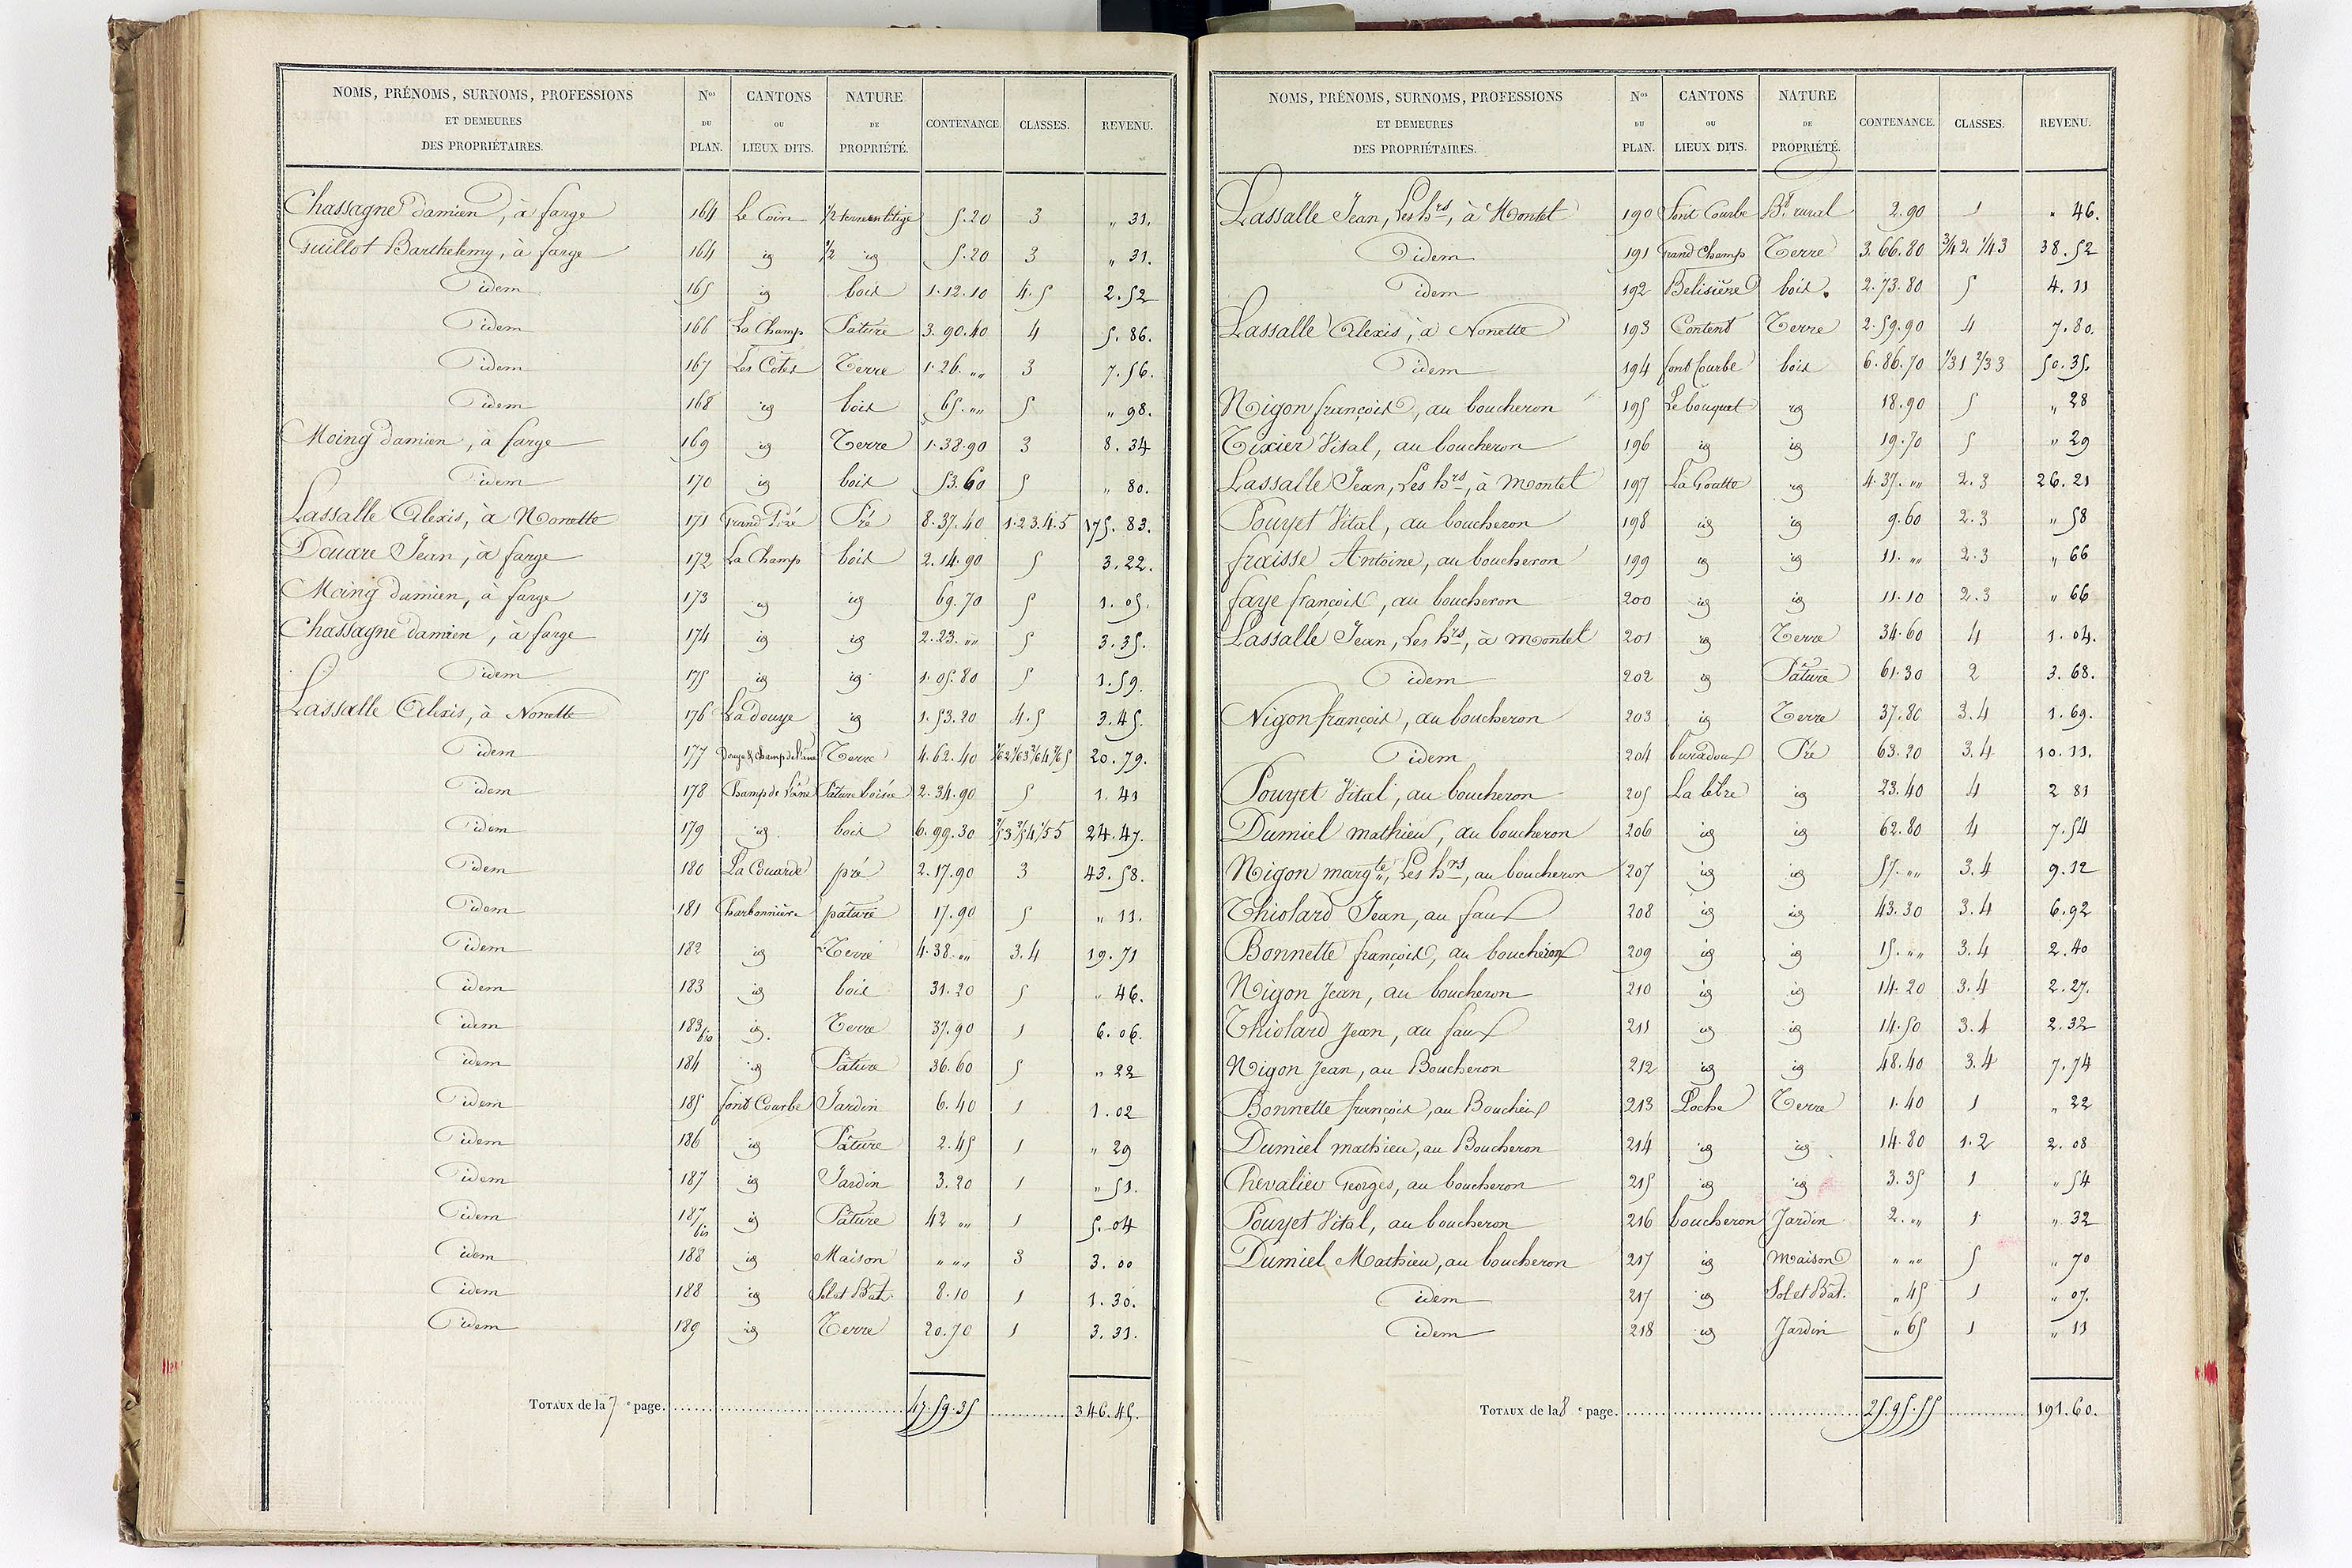 NOMS, PRÉNOMS, SURNOMS, PROFESSIONS ET DEMEURES DES PROPRIÉTAIRES. Nos DU PLAN. CANTONS OU LIEUX DITS. NATURE DE PROPRIÉTÉ. CONTENANCE. CLASSES. REVENU.
Chassagne damien, à farge 164 Le Coin 1/2 5.20 3 " 31.
Guillot Barthelemy, à farge 164 id 1/2 id 5.20 3 " 31.
idem 165 id bois 1.12.10 4.5 2.52
idem 166 La Champ Pature 3.90.40 4 5.86.
idem 167 Les Côtes Terre 1.26. "" 3 7.56.
idem 168 id bois 65. "" 5 " 98.
Moing damien, à farge 169 id Terre 1.38.90 3 8.34
idem 170 id bois 53.60 5 " 80.
Lassalle Alexis, à Nonette 171 Grand Pré Pré 8.37.40 1.2.3.4.5 175.83.
Douare Jean, à farge 172 La Champ bois 2.14.90 5 3.22.
Moing damien, à farge 173 id id 69.70 5 1.05.
Chassagne damien, à farge 174 id id 2.23. "" 5 3.35.
idem 175 id id 1.05.80 5 1.59.
Lassalle Alexis, à Nonette 176 La douye id 1.53.20 4.5 3.45.
idem 177 Douye & Champ de l'ane Terre 4.62.40 20.79.
idem 178 Champ de l'âne Pature boisée 2.34.90 5 1.41
idem 179 id bois 6.99.30 24.47.
idem 180 La Couarde pré 2.17.90 3 43.58.
idem 181 Charbonnière pature 17.90 5 " 11.
idem 182 id Terre 4.38. "" 3.4 19.71
idem 183 id bois 31.20 5 " 46.
idem 183 bis id. Terre 37.90 1 6.06.
idem 184 id Pature 36.60 5 " 22
idem 185 font Courbe Jardin 6.40 1 1.02
idem 186 id Pâture 2.45 1 " 29
idem 187 id Jardin 3.20 1 " 51.
idem 187 bis id Pâture 42 "" 1 5.04
idem 188 id Maison " "" 3 3.00
idem 188 id Sol et Bat. 8.10 1 1.30.
idem 189 id Terre 20.70 1 3.31.
TOTAUX de la 7e page. 47.59.35 346.45.
NOMS, PRÉNOMS, SURNOMS, PROFESSIONS ET DEMEURES DES PROPRIÉTAIRES. Nos DU PLAN. CANTONS OU LIEUX DITS. NATURE DE PROPRIÉTÉ. CONTENANCE. CLASSES. REVENU.
Lassalle Jean, Les hrs, à Montel 190 font Courbe Bt rural 2.90 1 " 46.
idem 191 Grand Champ Terre 3.66.80 3/4 2 1/4 3 38.52
idem 192 Belisière bois. 2.73.80 5 4.11
Lassalle Alexis, à Nonette 193 Content Terre 2.59.90 4 7.80.
idem 194 font Courbe bois 6.86.70 1/3 1 2/3 3 50.35.
Nigon françois, au boucheron 195 Le bouquet id 18.90 5 " 28
Tixier Vital, au boucheron 196 id id 19.70 5 " 29
Lassalle Jean, Les hrs, à montel 197 La Goutte id 4.37. "" 2.3 26.21
Pouyet Vital, au boucheron 198 id id 9.60 2.3 " 58
fraisse Antoine, au boucheron 199 id id 11. "" 2.3 " 66
faye françois, au boucheron 200 id id 11.10 2.3 " 66
Lassalle Jean, Les hrs, à montel 201 id Terre 34.60 4 1.04.
idem 202 id Pâture 61.30 2 3.68.
Nigon françois, au boucheron 203 id Terre 37.80 3.4 1.69.
idem 204 buradoux Pré 63.20 3.4 10.11.
Pouyet Vital, au boucheron 205 id 23.40 4 2 81
Dumiel mathieu, au boucheron 206 id id 62.80 4 7.54
Nigon margte, Les hrs, au boucheron 207 id id 57. "" 3.4 9.12
Thiolard Jean, au faux 208 id id 43.30 3.4 6.92
Bonnette françois, au boucheron 209 id id 15. "" 3.4 2.40
Nigon Jean, au boucheron 210 id id 14.20 3.4 2.27.
Thiolard Jean, au faux 211 id id 14.50 3.4 2.32
Nigon Jean, au Boucheron 212 id id 48.40 3.4 7.74
Bonnette françois, au 213 Poche Terre 1.40 1 " 22
Dumiel mathieu, au Boucheron 214 id id 14.80 1.2 2.08
Chevalier Georges, au boucheron 215 id id 3.35 1 " 54
Pouyet Vital, au boucheron 216 boucheron Jardin 2. "" 1 " 32
Dumiel Mathieu, au boucheron 217 id maison " "" 5 " 70
idem 217 id Sol et Bat. " 45 1 " 07.
idem 218 id Jardin " 65 1 " 11
TOTAUX de la 8e page. 25.95.55 191.60.